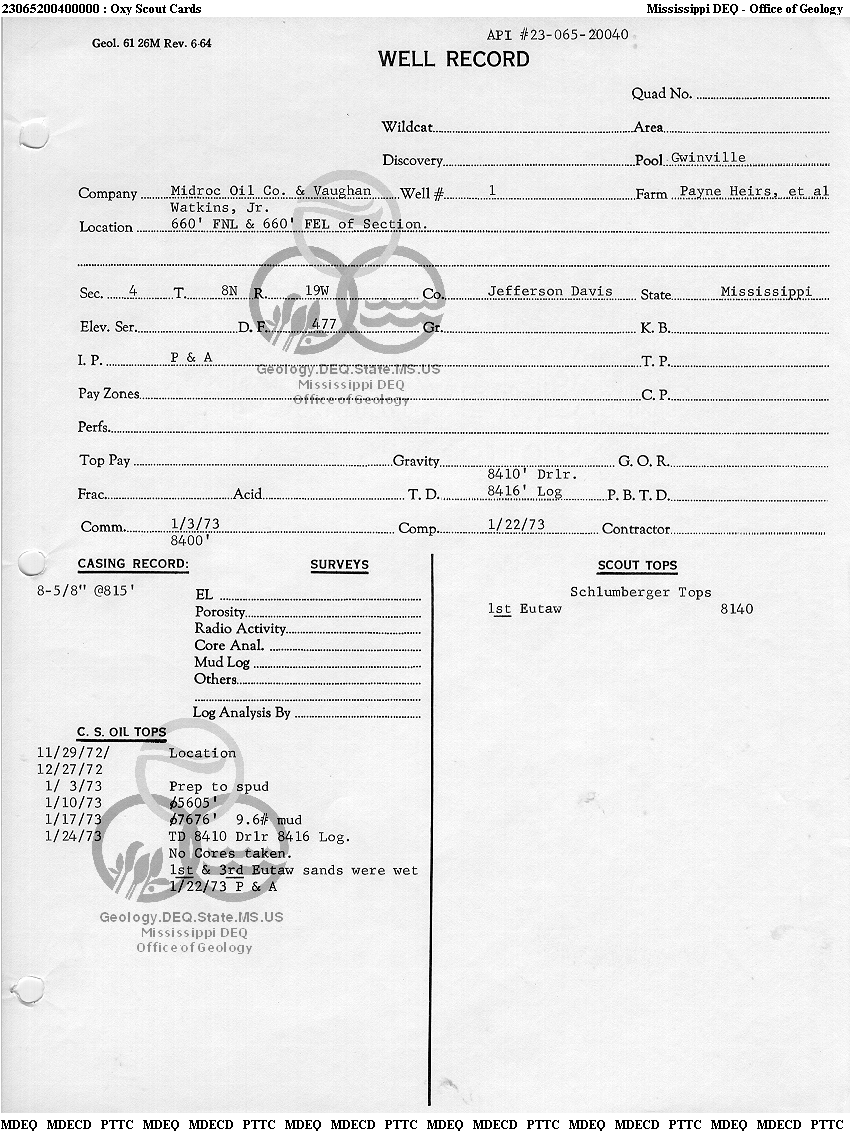 23065200400000 : Oxy Scout Cards Mississippi DEQ - Office of Geology
Geol. 61 26M Rev. 6-64 API #23-065-20040
WELL RECORD
Quad No.
Wildcat Area
Discovery Pool Gwinville
Company Midroc Oil Co. & Vaughan Well # 1 Farm Payne Heirs, et al
Watkins, Jr.
Location 660' FNL & 660' FEL of Section.
Sec. 4 T. 8N R. 19W Co. Jefferson Davis State Mississippi
Elev. Ser. D. F. 477 Gr. K. B.
I. P. P & A T. P.
Geology.DEQ.State.MS.US
Mississippi DEQ
Pay Zones C. P.
Office of Geology
Perfs.
Top Pay Gravity G. O. R.
8410' Drlr.
Frac. Acid T. D. 8416' Log P. B. T. D.
Comm. 1/3/73 Comp. 1/22/73 Contractor
8400'
CASING RECORD: SURVEYS SCOUT TOPS
8-5/8" @815' EL Schlumberger Tops
Porosity 1st Eutaw 8140
Radio Activity
Core Anal.
Mud Log
Others
Log Analysis By
C. S. OIL TOPS
11/29/72/ Location
12/27/72
1/ 3/73 Prep to spud
1/10/73 ∅5605'
1/17/73 ∅7676' 9.6# mud
1/24/73 TD 8410 Drlr 8416 Log.
No Cores taken.
1st & 3rd Eutaw sands were wet
1/22/73 P & A
Geology.DEQ.State.MS.US
Mississippi DEQ
Office of Geology
MDEQ MDECD PTTC MDEQ MDECD PTTC MDEQ MDECD PTTC MDEQ MDECD PTTC MDEQ MDECD PTTC MDEQ MDECD PTTC